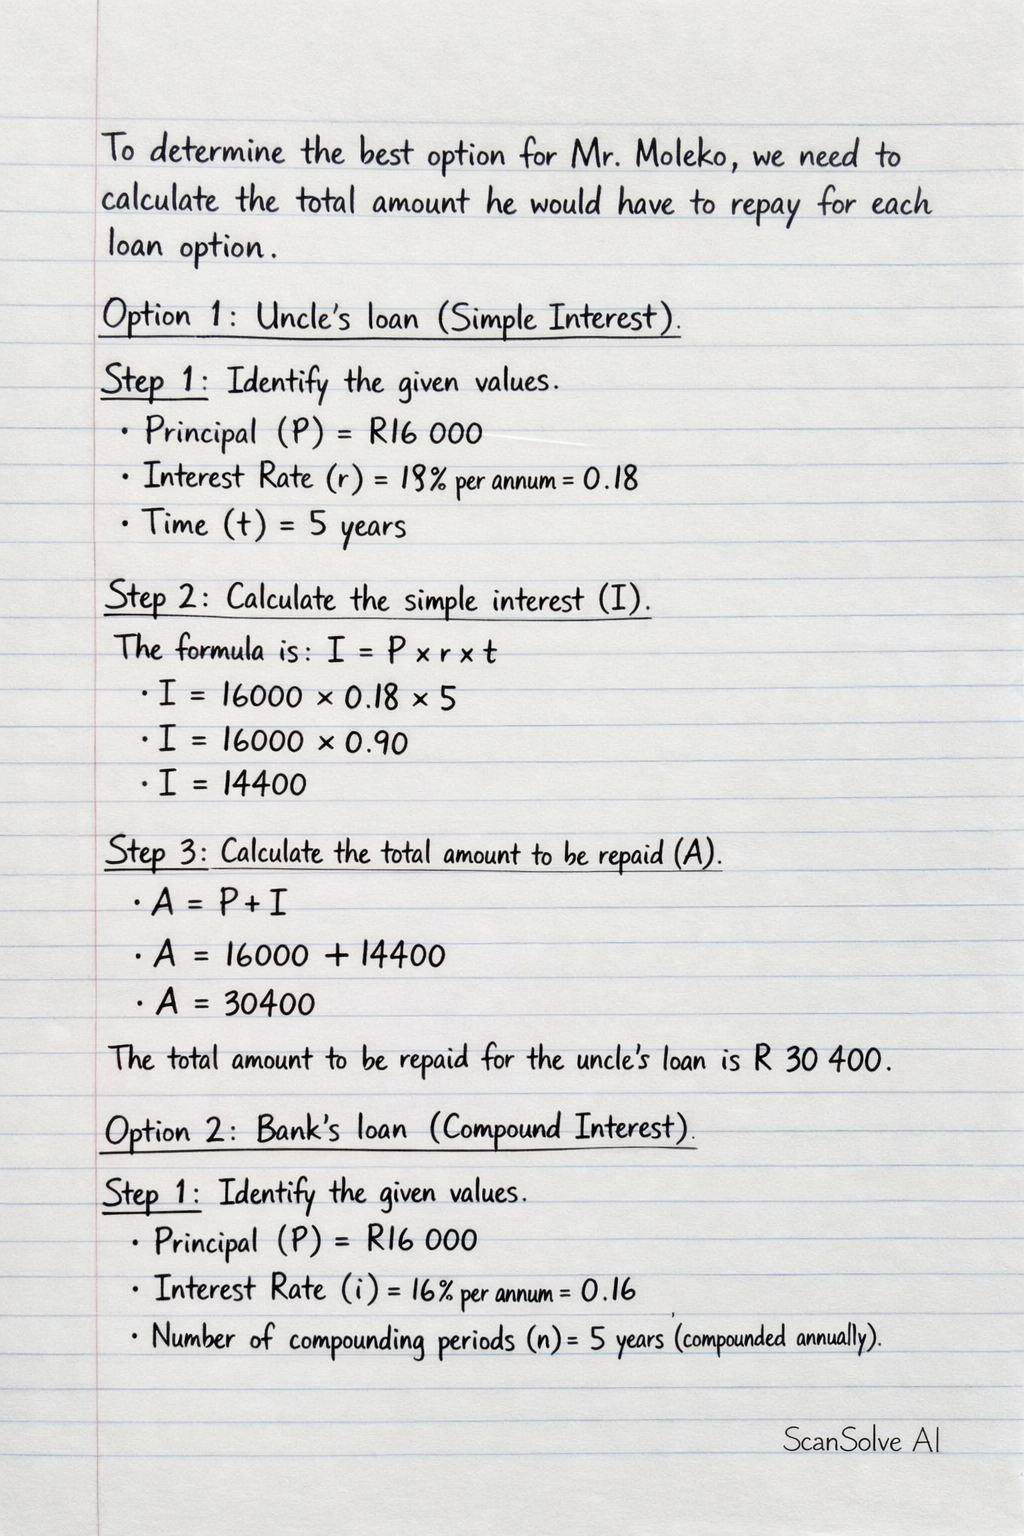 To determine the best option for Mr. Moleko, we need to
calculate the total amount he would have to repay for each
loan option.
Option 1: Uncle's loan (Simple Interest).
Step 1: Identify the given values.
• Principal (P) = R16 000
• Interest Rate (r) = 18% per annum = 0.18
• Time (t) = 5 years
Step 2: Calculate the simple interest (I).
The formula is: I = P × r × t
• I = 16000 × 0.18 × 5
• I = 16000 × 0.90
• I = 14400
Step 3: Calculate the total amount to be repaid (A).
• A = P + I
• A = 16000 + 14400
• A = 30400
The total amount to be repaid for the uncle's loan is R 30 400.
Option 2: Bank's loan (Compound Interest).
Step 1: Identify the given values.
• Principal (P) = R16 000
• Interest Rate (i) = 16% per annum = 0.16
• Number of compounding periods (n) = 5 years (compounded annually).
ScanSolve AI